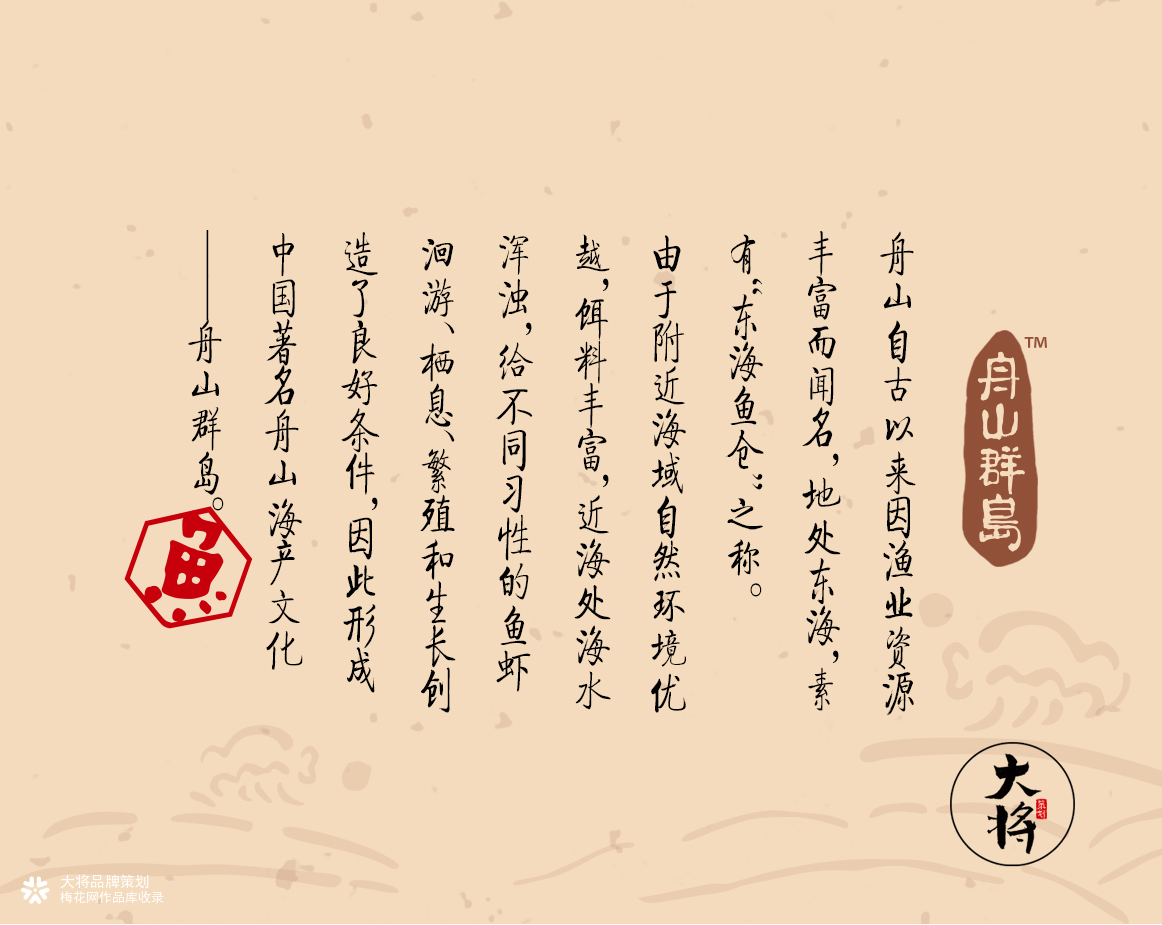 舟山群島
TM
舟山自古以来因渔业资源
丰富而闻名，地处东海，素
有“东海鱼仓”之称。
由于附近海域自然环境优
越，饵料丰富，近海处海水
浑浊，给不同习性的鱼虾
洄游、栖息、繁殖和生长创
造了良好条件，因此形成
中国著名舟山海产文化
——舟山群岛。
大将
策划
大将品牌策划
梅花网作品库收录